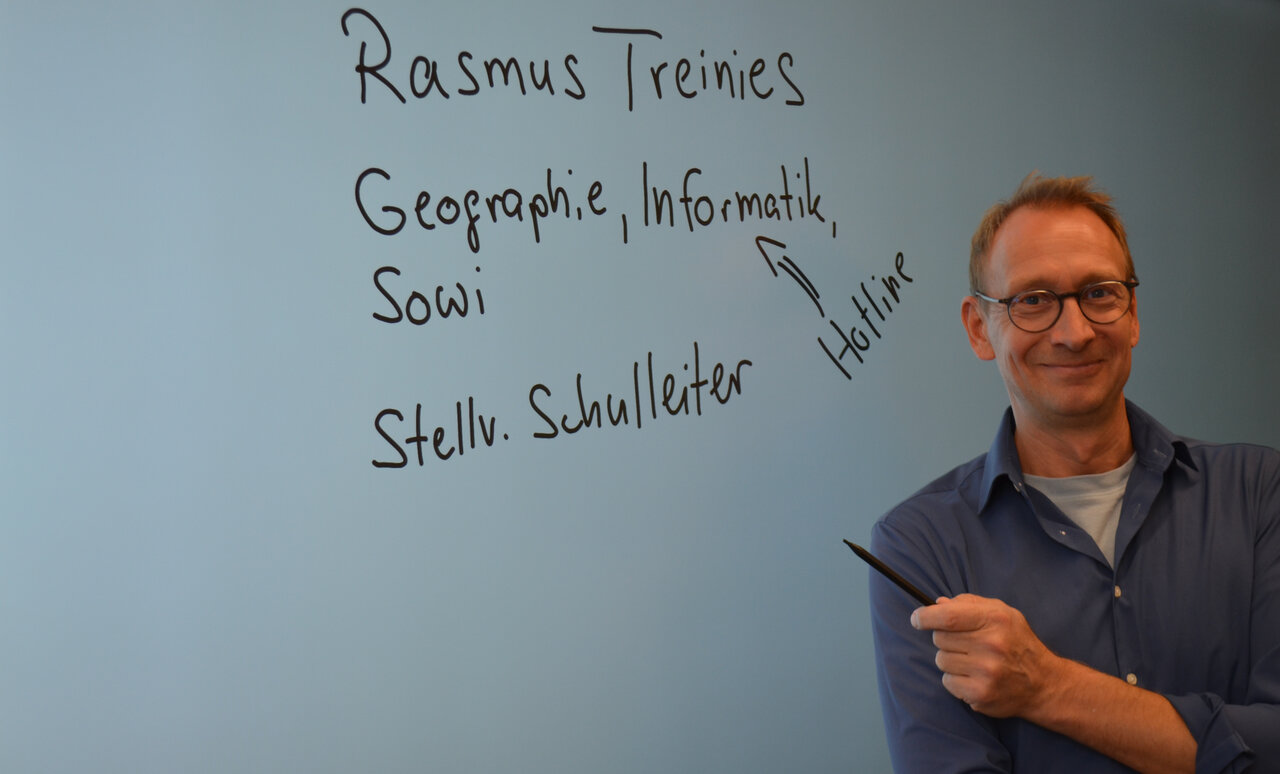 Rasmus Treinies
Geographie, Informatik,
Sowi
Hotline
Stellv. Schulleiter